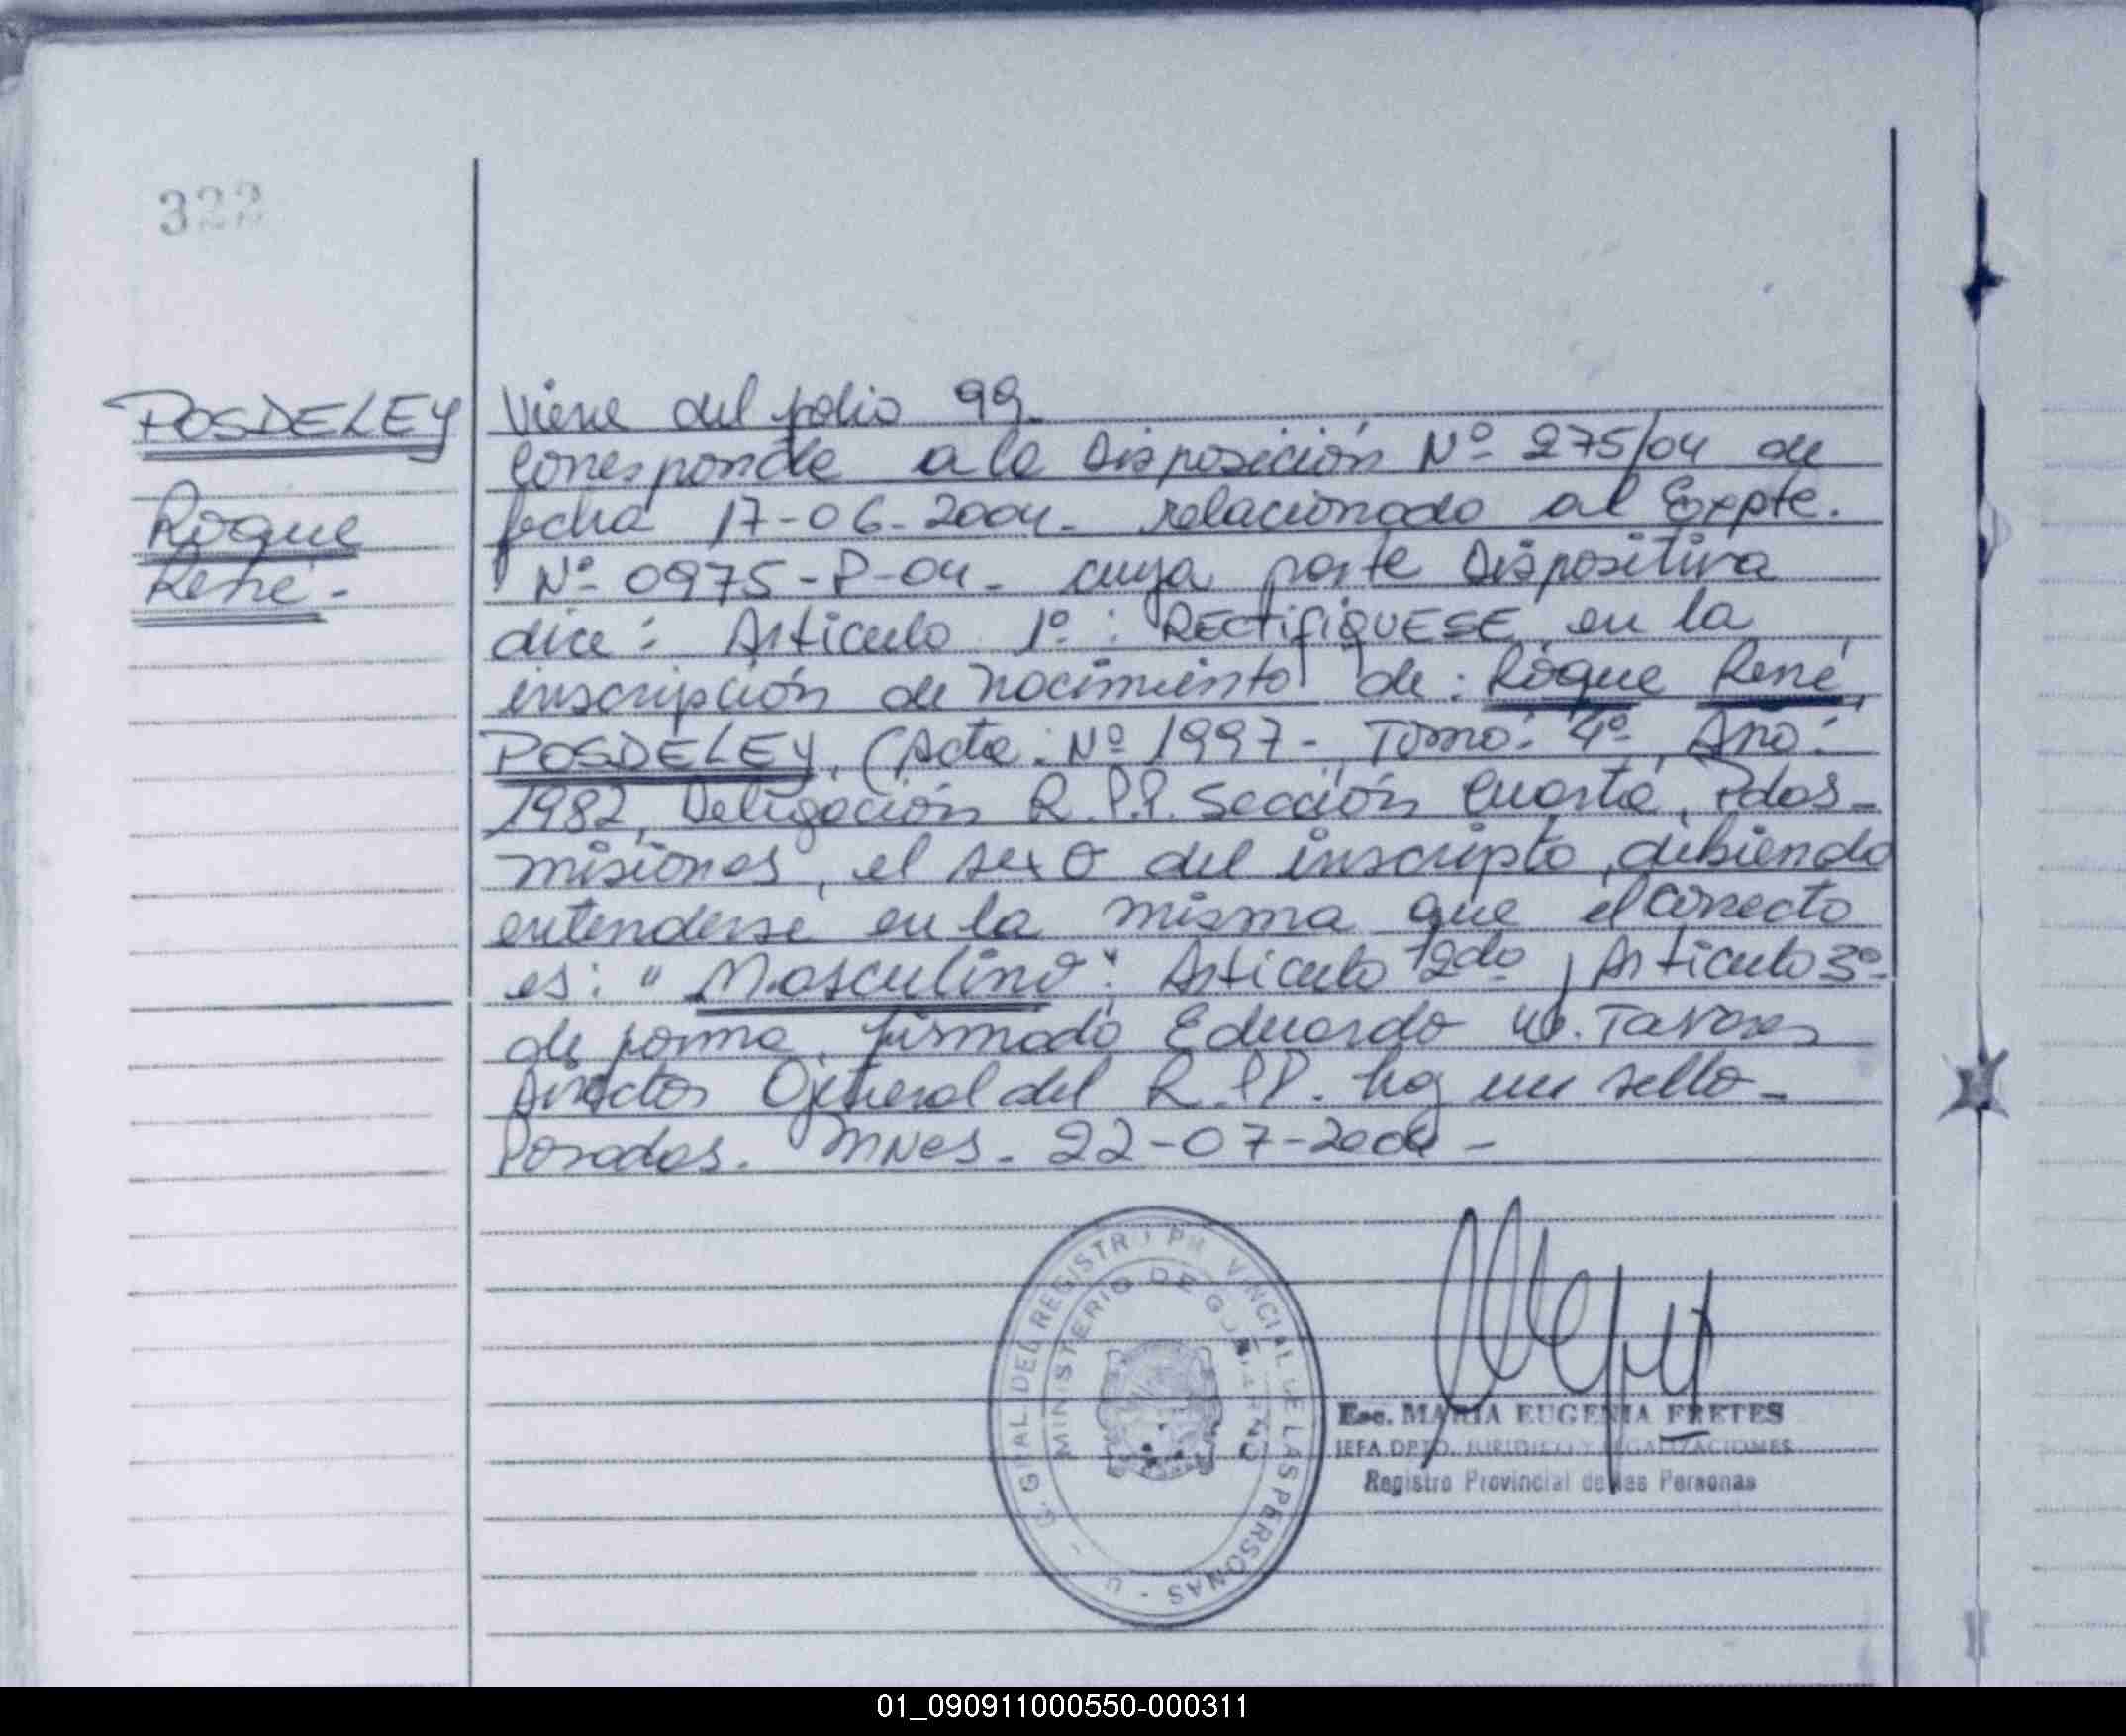 322
POSDELEY
Roque
René.-
Viene del folio 99.-
Corresponde a la Disposición Nº 275/04 de
fecha 17-06-2004.- relacionado al Expte.
Nº 0975-P-04.- cuya parte Dispositiva
dice: Artículo 1º: RECTIFIQUESE en la
inscripción de nacimiento de: Roque René,
POSDELEY, (Acta: Nº 1997-, Tomo: 4º, Año:
1982, Delegación R.P.P. Sección Cuarta, Pdas-
misiones, el sexo del inscripto, debiendo
entenderse en la misma que el correcto
es: "Masculino": Artículo 2do, Artículo 3º-
de forma, firmado Eduardo Tavares
Director General del R.P.P. hay un sello-
Posadas. Mnes. 22-07-2004-
G. GRAL DEL REGISTRO PROVINCIAL DE LAS PERSONAS -
MINISTERIO DE GOBIERNO
Esc. MARIA EUGENIA FRETES
JEFA DPTO. JURIDICO Y LEGALIZACIONES
Registro Provincial de las Personas
01_090911000550-000311